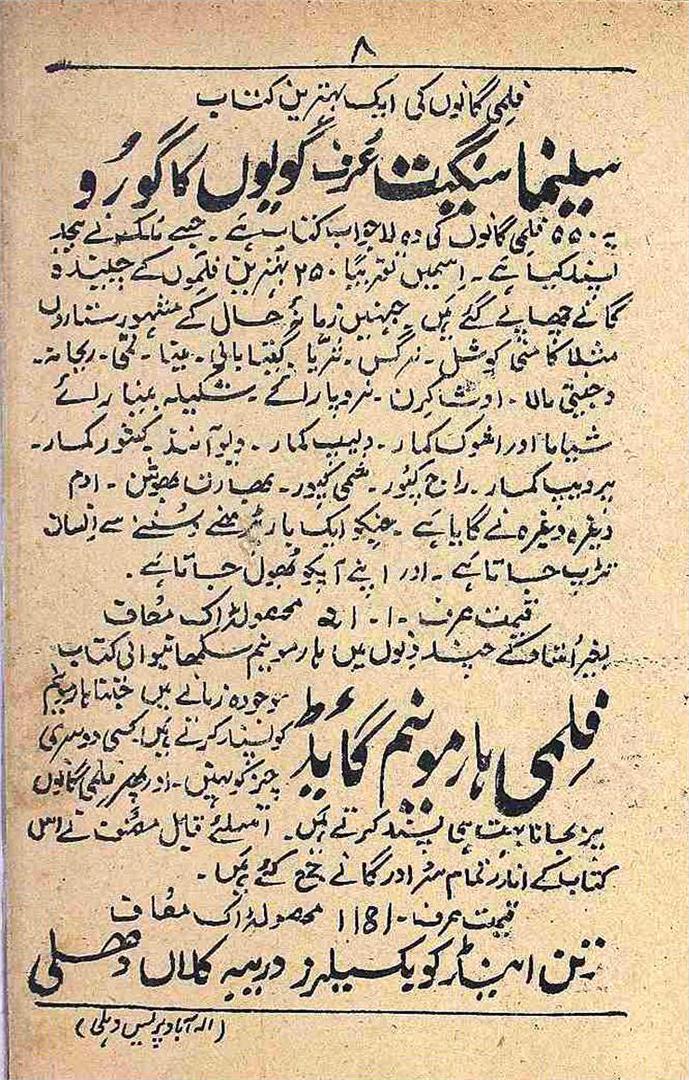 ۸
فلمی گانوں کی ایک بہترین کتاب
سینما سنگیت عرف گویوں کا گورو
یہ ۵۵۰ فلمی گانوں کی وہ لاجواب کتاب ہے۔ جسے پبلک نے بیحد
پسند کیا ہے۔ اسمیں تقریبا ۲۵۰ بہترین فلموں کے چیندہ
گانے چھاپے گئے ہیں جنہیں زمانۂ حال کے مشہور ستاروں
مثلا کامنی کوشل۔ نرگس۔ ثریا۔ گیتا بالی۔ بینا۔ نمی۔ ریحانہ۔
وجنتی مالا۔ اوشا کرن۔ نروپا رائے۔ شکیلہ
شیاما اور اشوک کمار۔ دلیپ کمار۔ دیو آنند۔ کشور کمار۔
پردیپ کمار۔ راج کپور۔ شمی کپور۔ بھارت بھوشن۔ اوم
وغیرہ وغیرہ نے گایا ہے۔ جنکو ایک بار پڑھنے و سننے سے انسان
تڑپ جاتا ہے۔ اور اپنے آپکو بھول جاتا ہے۔
قیمت صرف محصولڈاک معاف
بغیر استاد کے چند دنوں میں ہارمونیم سکھانیوالی کتاب
فلمی ہارمونیم گائیڈ
موجودہ زمانے میں جتنا ہارمونیم
کو پسند کرتے ہیں کسی دوسری
چیز کو نہیں۔ اور پھر فلمی گانوں
پر بجانا بہت ہی پسند کرتے ہیں۔ اسلئے قابل مصنف نے اس
کتاب کے اندر تمام سر اور گانے جمع کئے ہیں۔
قیمت صرف محصولڈاک معاف
رتن اینڈ کو بکسیلرز دریبہ کلاں دھلی
(الہ آباد پریس دہلی)